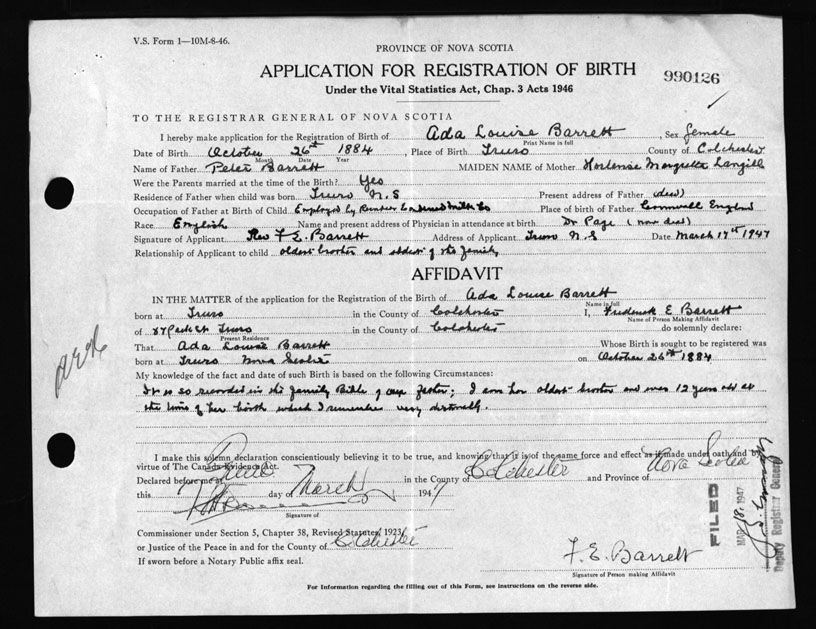 V.S. Form 1—10M-8-46.
PROVINCE OF NOVA SCOTIA
APPLICATION FOR REGISTRATION OF BIRTH
990126
Under the Vital Statistics Act, Chap. 3 Acts 1946
TO THE REGISTRAR GENERAL OF NOVA SCOTIA
I hereby make application for the Registration of Birth of Ada Louise Barrett Sex female
Print Name in full
Date of Birth October 26th 1884, Place of Birth Truro County of Colchester
Month Date Year
Name of Father Peter Barrett MAIDEN NAME of Mother Hortense Langill
Were the Parents married at the time of the Birth? Yes
Residence of Father when child was born Truro N.S Present address of Father (dead)
Occupation of Father at Birth of Child Employed by Milk Co Place of birth of Father Cornwall England
Race English Name and present address of Physician in attendance at birth Dr Page (now dead)
Signature of Applicant Rev F. E. Barrett Address of Applicant Truro N.S Date March 17th 1947
Relationship of Applicant to child oldest brother and oldest of the family
AFFIDAVIT
IN THE MATTER of the application for the Registration of the Birth of Ada Louise Barrett
Name in full
born at Truro in the County of Colchester I, Frederick E Barrett
Name of Person Making Affidavit
of Park St Truro in the County of Colchester do solemnly declare:
Present Residence
That Ada Louise Barrett Whose Birth is sought to be registered was
born at Truro Nova Scotia on October 26th 1884
My knowledge of the fact and date of such Birth is based on the following Circumstances:
It is so recorded in the family Bible of our father; I am her oldest brother and was 12 years old at
the time of her birth which I remember very distinctly.
I make this solemn declaration conscientiously believing it to be true, and knowing that it is of the same force and effect as if made under oath and by
virtue of The Canada Evidence Act.
Declared before me at Truro in the County of Colchester and Province of Nova Scotia
this day of March 1947
Signature of
Commissioner under Section 5, Chapter 38, Revised Statutes, 1923
or Justice of the Peace in and for the County of Colchester
If sworn before a Notary Public affix seal.
F. E. Barrett
Signature of Person making Affidavit
FILED
MAR 18. 1947
Deputy Registrar General
For Information regarding the filling out of this Form, see instructions on the reverse side.